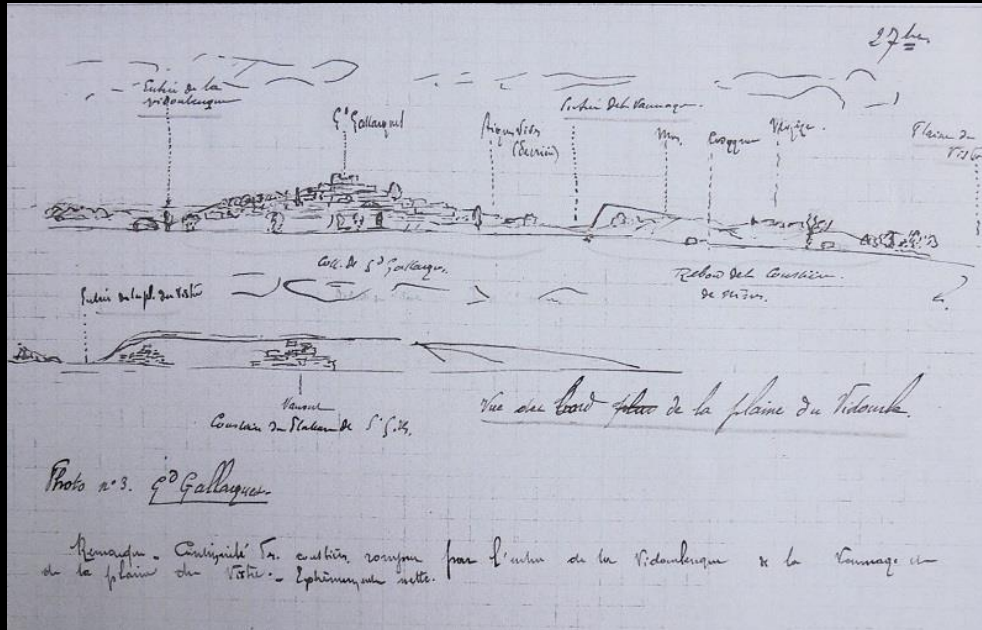 27 bis
Entrée de la
Vidourlenque
Gd Gallargues
Aigues Vives
(derrière)
Entrée de la Vaunage.
Mus
Codognan
Vergèze.
Plaine du
Vistre
Coll. de Gd Gallargues.
Rebord de la Coustière
de Nîmes.
Entrée de la pl. du Vistre
?
Vauvert
Coustière du Plateau de St Gilles.
Vue du bord de la plaine du Vidourle.
Photo n°3. Gd Gallargues.
Remarquer - Continuité coustière rompue par l'entrée de la Vidourlenque & la Vaunage
de la plaine du Vistre. - nette.